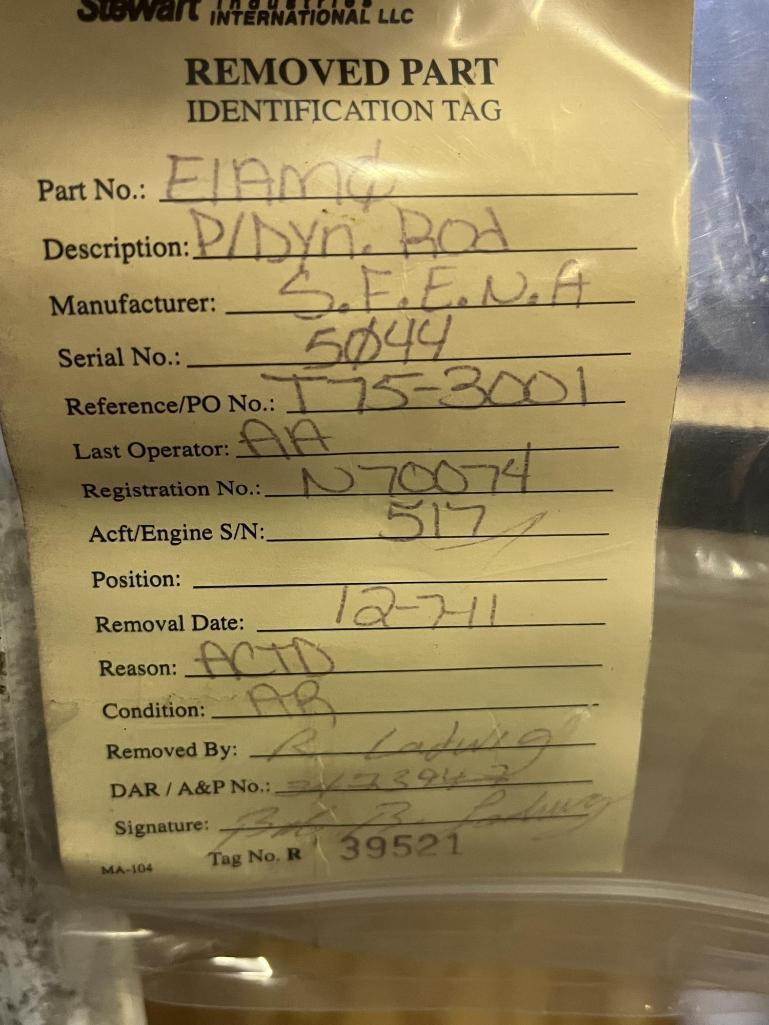 Stewart Industries
INTERNATIONAL LLC
REMOVED PART
IDENTIFICATION TAG
Part No.: E1AM¢
Description: P/Dyn. Rod
Manufacturer: S.F.E.N.A
Serial No.: 5Ø44
Reference/PO No.: T75-3001
Last Operator: AA
Registration No.: N70074
Acft/Engine S/N: 517
Position:
Removal Date: 12-7-11
Reason: ACTD
Condition: AR
Removed By: R Ladwig
DAR / A&P No.:
Signature: B. Ladwig
MA-104 Tag No. R 39521